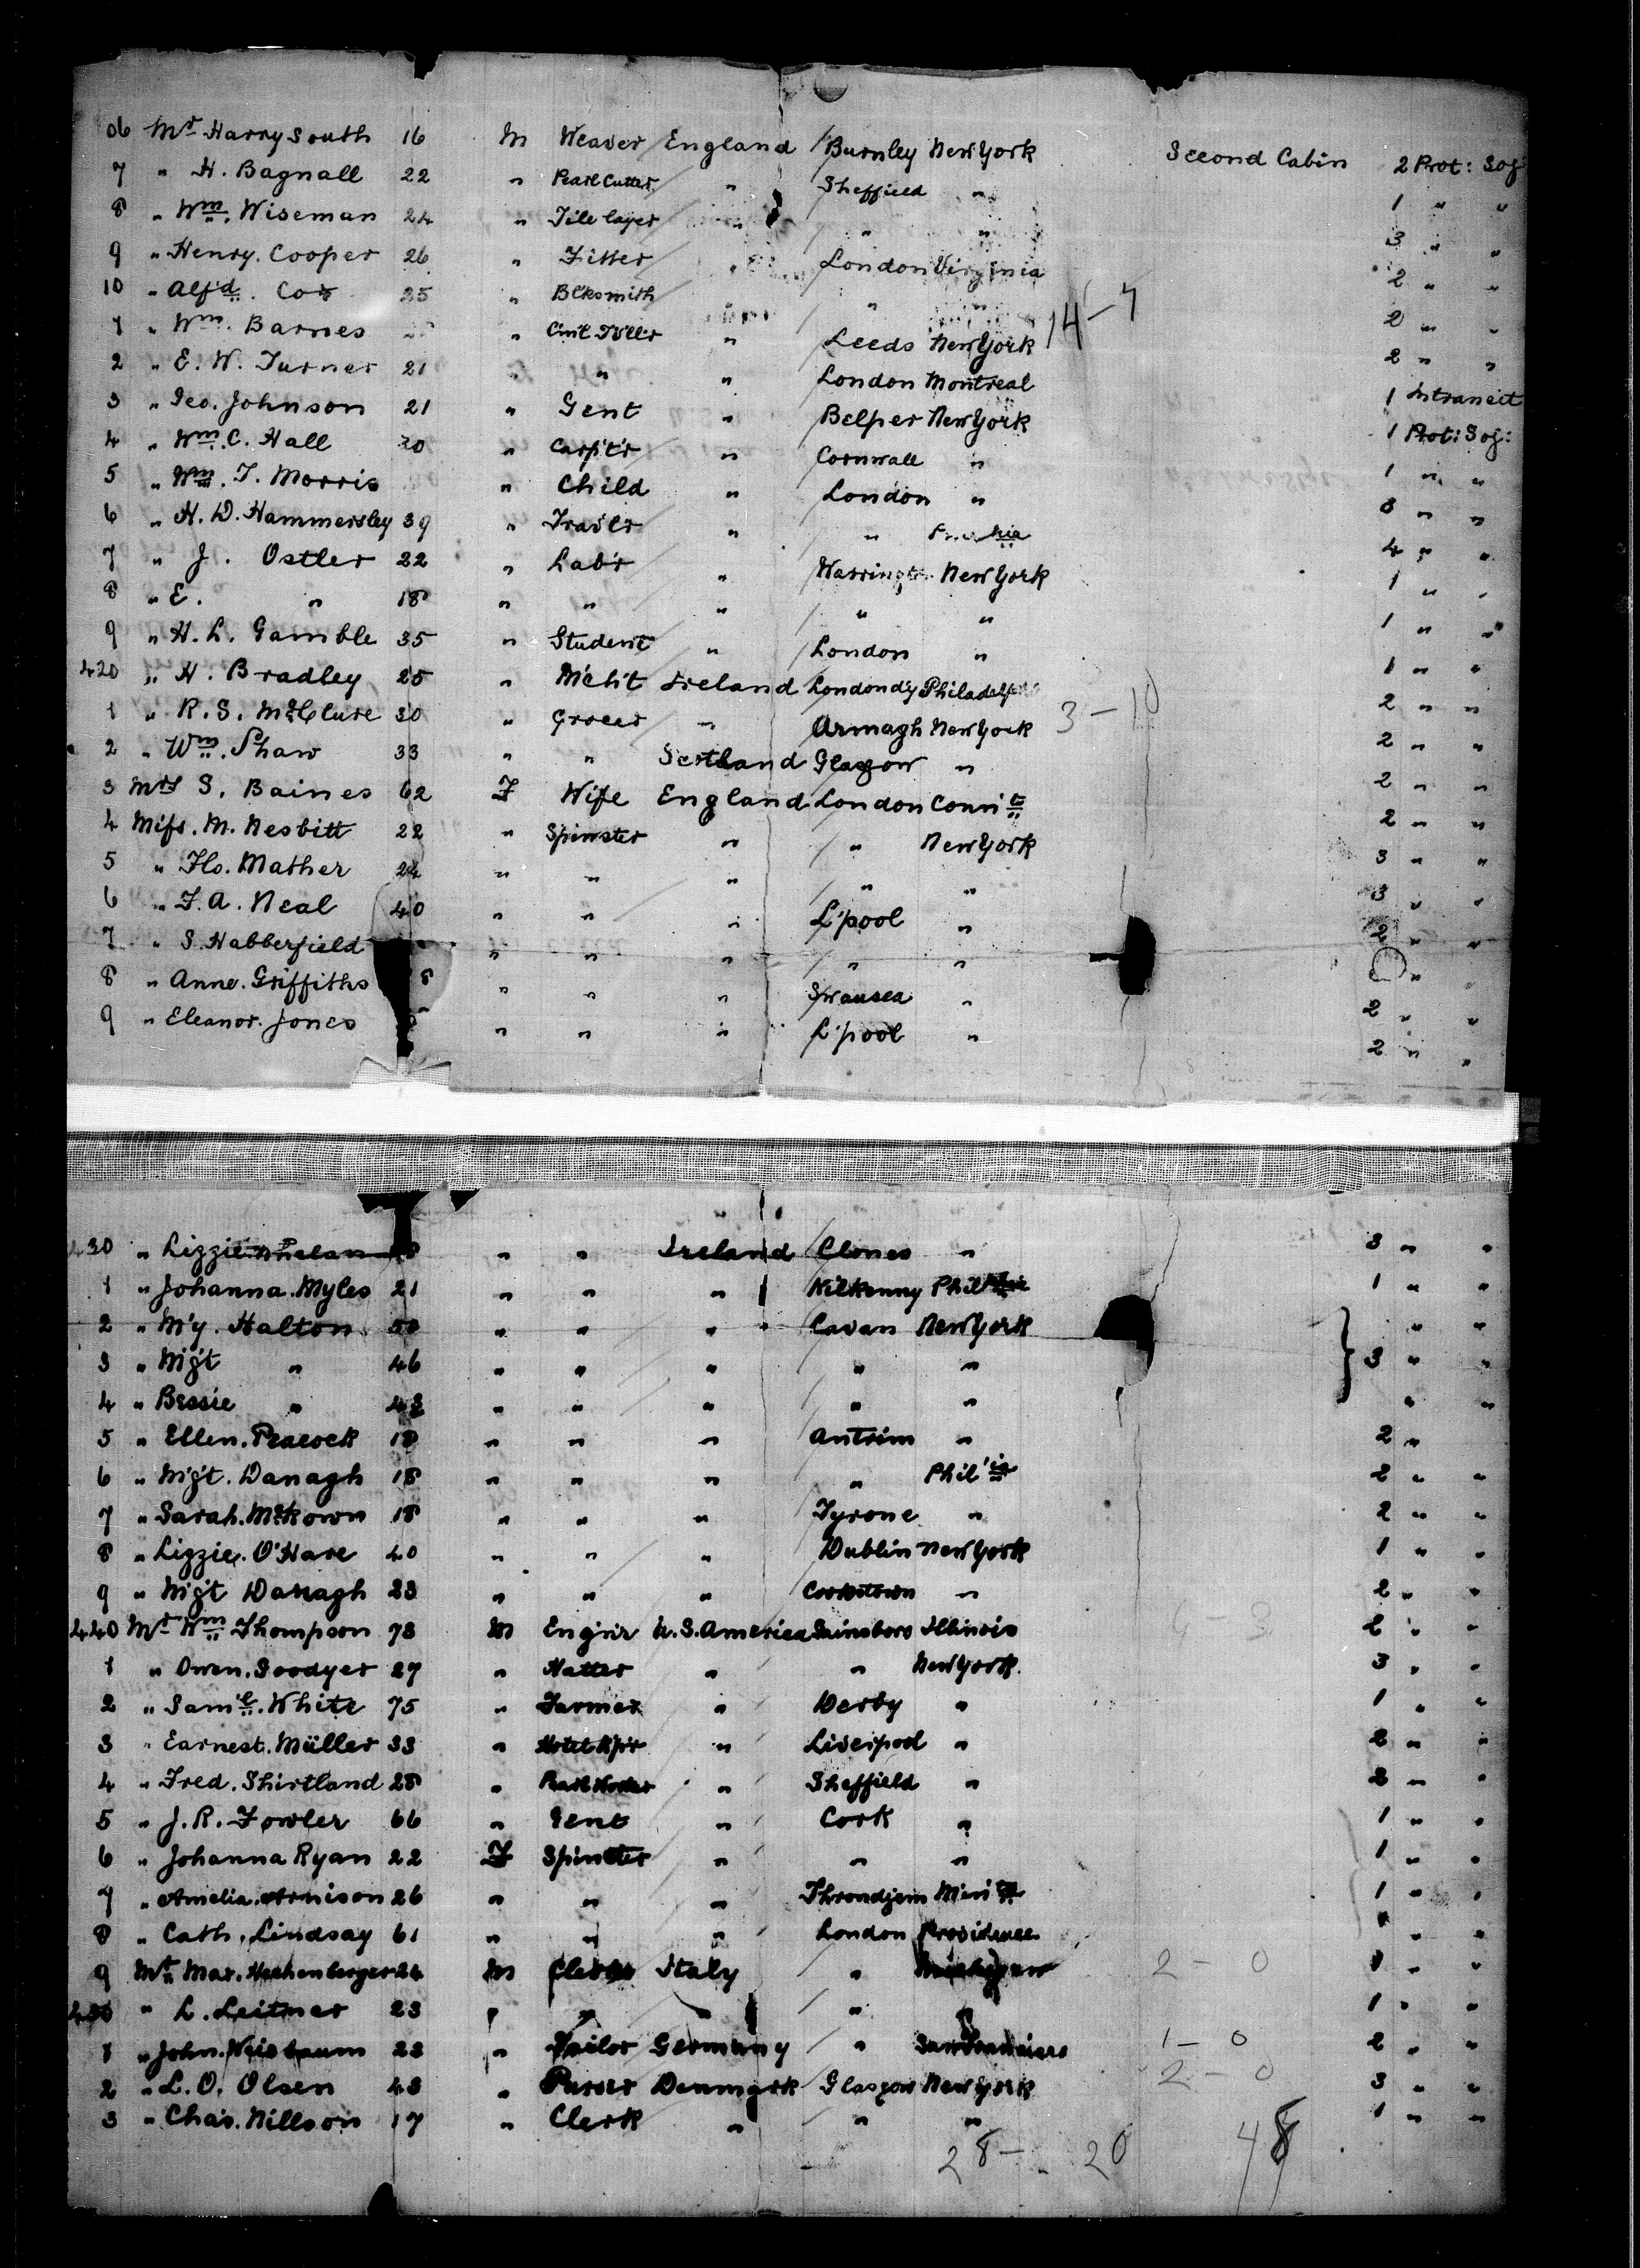 06 Mr Harry South 16 M Weaver England Burnley New York Second Cabin 2 Prot: Soj:
7 " H. Bagnall 22 " Pearl Cutter " Sheffield " 1 " "
8 " Wm. Wiseman 24 " Tile layer " " " 3 " "
9 " Henry. Cooper 26 " Fitter " London Virginia 2 " "
10 " Alf'd. Cox 25 " Bl'ksmith " " " 2 " "
1 " Wm. Barnes " " Leeds New York 14-7 2 " "
2 " E. W. Turner 21 " " " London Montreal 1 Intransit
3 " Geo. Johnson 21 " Gent " Belper New York 1 Prot: Soj:
4 " Wm. C. Hall 30 " Carpt'r " Cornwall " 1 " "
5 " Wm. T. Morris " Child " London " 3 " "
6 " H. D. Hammersley 39 " Trav'lr " " 4 " "
7 " J. Ostler 22 " Lab'r " New York 1 " "
8 " E. " 18 " " " " " 1 " "
9 " H. L. Gamble 35 " Student " London " 1 " "
420 " H. Bradley 25 " M'ch't Ireland Londond'y Philadelphia 2 " "
1 " R. S. McClure 30 " Grocer " Armagh New York 3-10 2 " "
2 " Wm. Shaw 33 " " Scotland Glasgow " 2 " "
3 Mrs S. Baines 62 F Wife England London Conn't 2 " "
4 Miss. M. Nesbitt 22 " Spinster " " New York 3 " "
5 " Flo. Mather 24 " " " " " 3 " "
6 " F. A. Neal 40 " " " L'pool " 2 " "
7 " S. Habberfield " " " " " "
8 " Anne. Griffiths 8 " " " Swansea " 2 " "
9 " Eleanor. Jones " " " L'pool " 2 " "
430 " Lizzie Whelan 8 " " Ireland Clones " 3 " "
1 " Johanna. Myles 21 " " " Kilkenny 1 " "
2 " M'y. Halton " " " Cavan New York " "
3 " Mg't " 46 " " " " " 3 " "
4 " Bessie " 43 " " " " " " "
5 " Ellen. Peacock 18 " " " Antrim " 2 "
6 " Mg't. Danagh 18 " " " " Phil'ia 2 " "
7 " Sarah. McKown 18 " " " Tyrone " 2 " "
8 " Lizzie. O'Hare 40 " " " Dublin New York 1 " "
9 " Mg't Danagh 23 " " " Cookstown " 2 " "
440 Mr Wm Thompson 73 M Engin'r U.S. America Illinois 2 " "
1 " Owen. Goodyer 27 " Hatter " " New York. 3 " "
2 " Sam'l. White 75 " Farmer " Derby " 1 " "
3 " Earnest. Müller 33 " Hotel Kp'r " Liverpool " 2 " "
4 " Fred. Shirtland 28 " " Sheffield " 2 " "
5 " J. R. Fowler 66 " Gent " Cork " 1 " "
6 " Johanna Ryan 22 F Spinster " " " 1 " "
7 " Amelia. Arnison 26 " " " Throndjem 1 " "
8 " Cath. Lindsay 61 " " " London Providence " "
9 Mr Max. Hechenberger 24 M Clerk Italy " Michigan 2-0 1 " "
" L. Leitner 23 " " " " " 1 " "
1 " John. 23 " Tailor Germany " 1-0 2 " "
2 " L. O. Olsen 43 " Purser Denmark Glasgow New York 2-0 3 " "
3 " Cha's. Nillson 17 " Clerk " " " 1 " "
28- 20 48